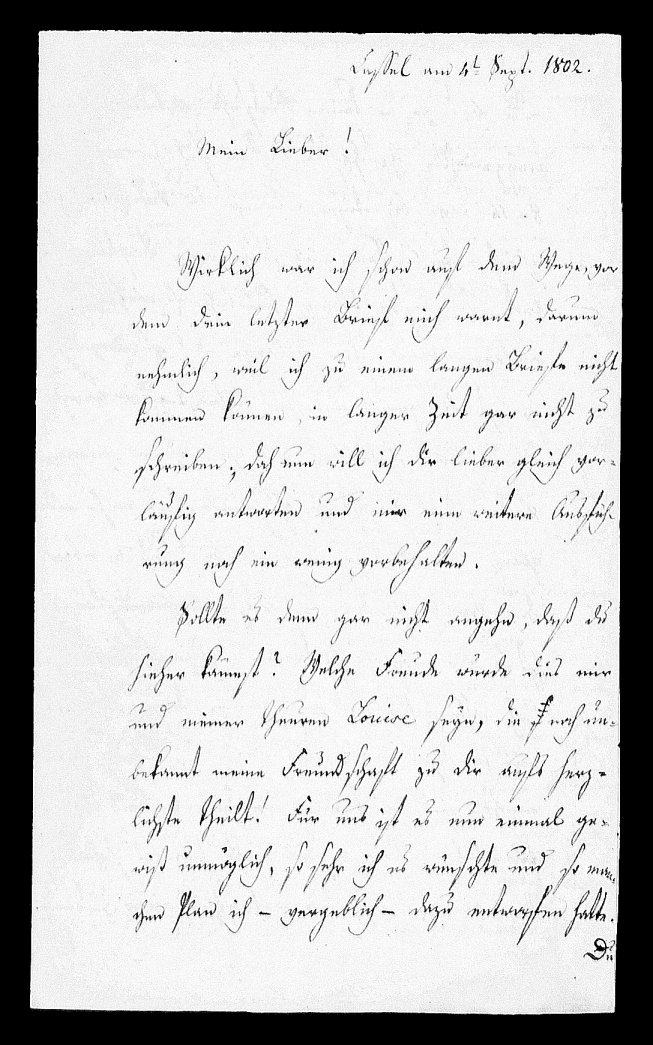 Cassel am 4t Sept. 1802.
Mein Lieber!
Wirklich war ich schon auf dem Wege, vor
dem dein letzter Brief mich warnt, darum
nehmlich, weil ich zu einem langen Briefe nicht
kommen können, in langer Zeit gar nicht zu
schreiben; doch nun will ich dir lieber gleich vor-
läufig antworten und mir eine weitere Ausfüh-
rung noch ein wenig vorbehalten.
Sollte es denn gar nicht angehn, daß du
hieher kämst? Welche Freude würde dies mir
und meiner theuren Louise seyn, die noch un-
bekannt meine Freundschaft zu dir aufs herz-
lichste theilt! Für uns ist es nun einmal ge-
wiß unmöglich, so sehr ich es wünschte und so man-
chen Plan ich – vergeblich – dazu entworfen hatte.
Du